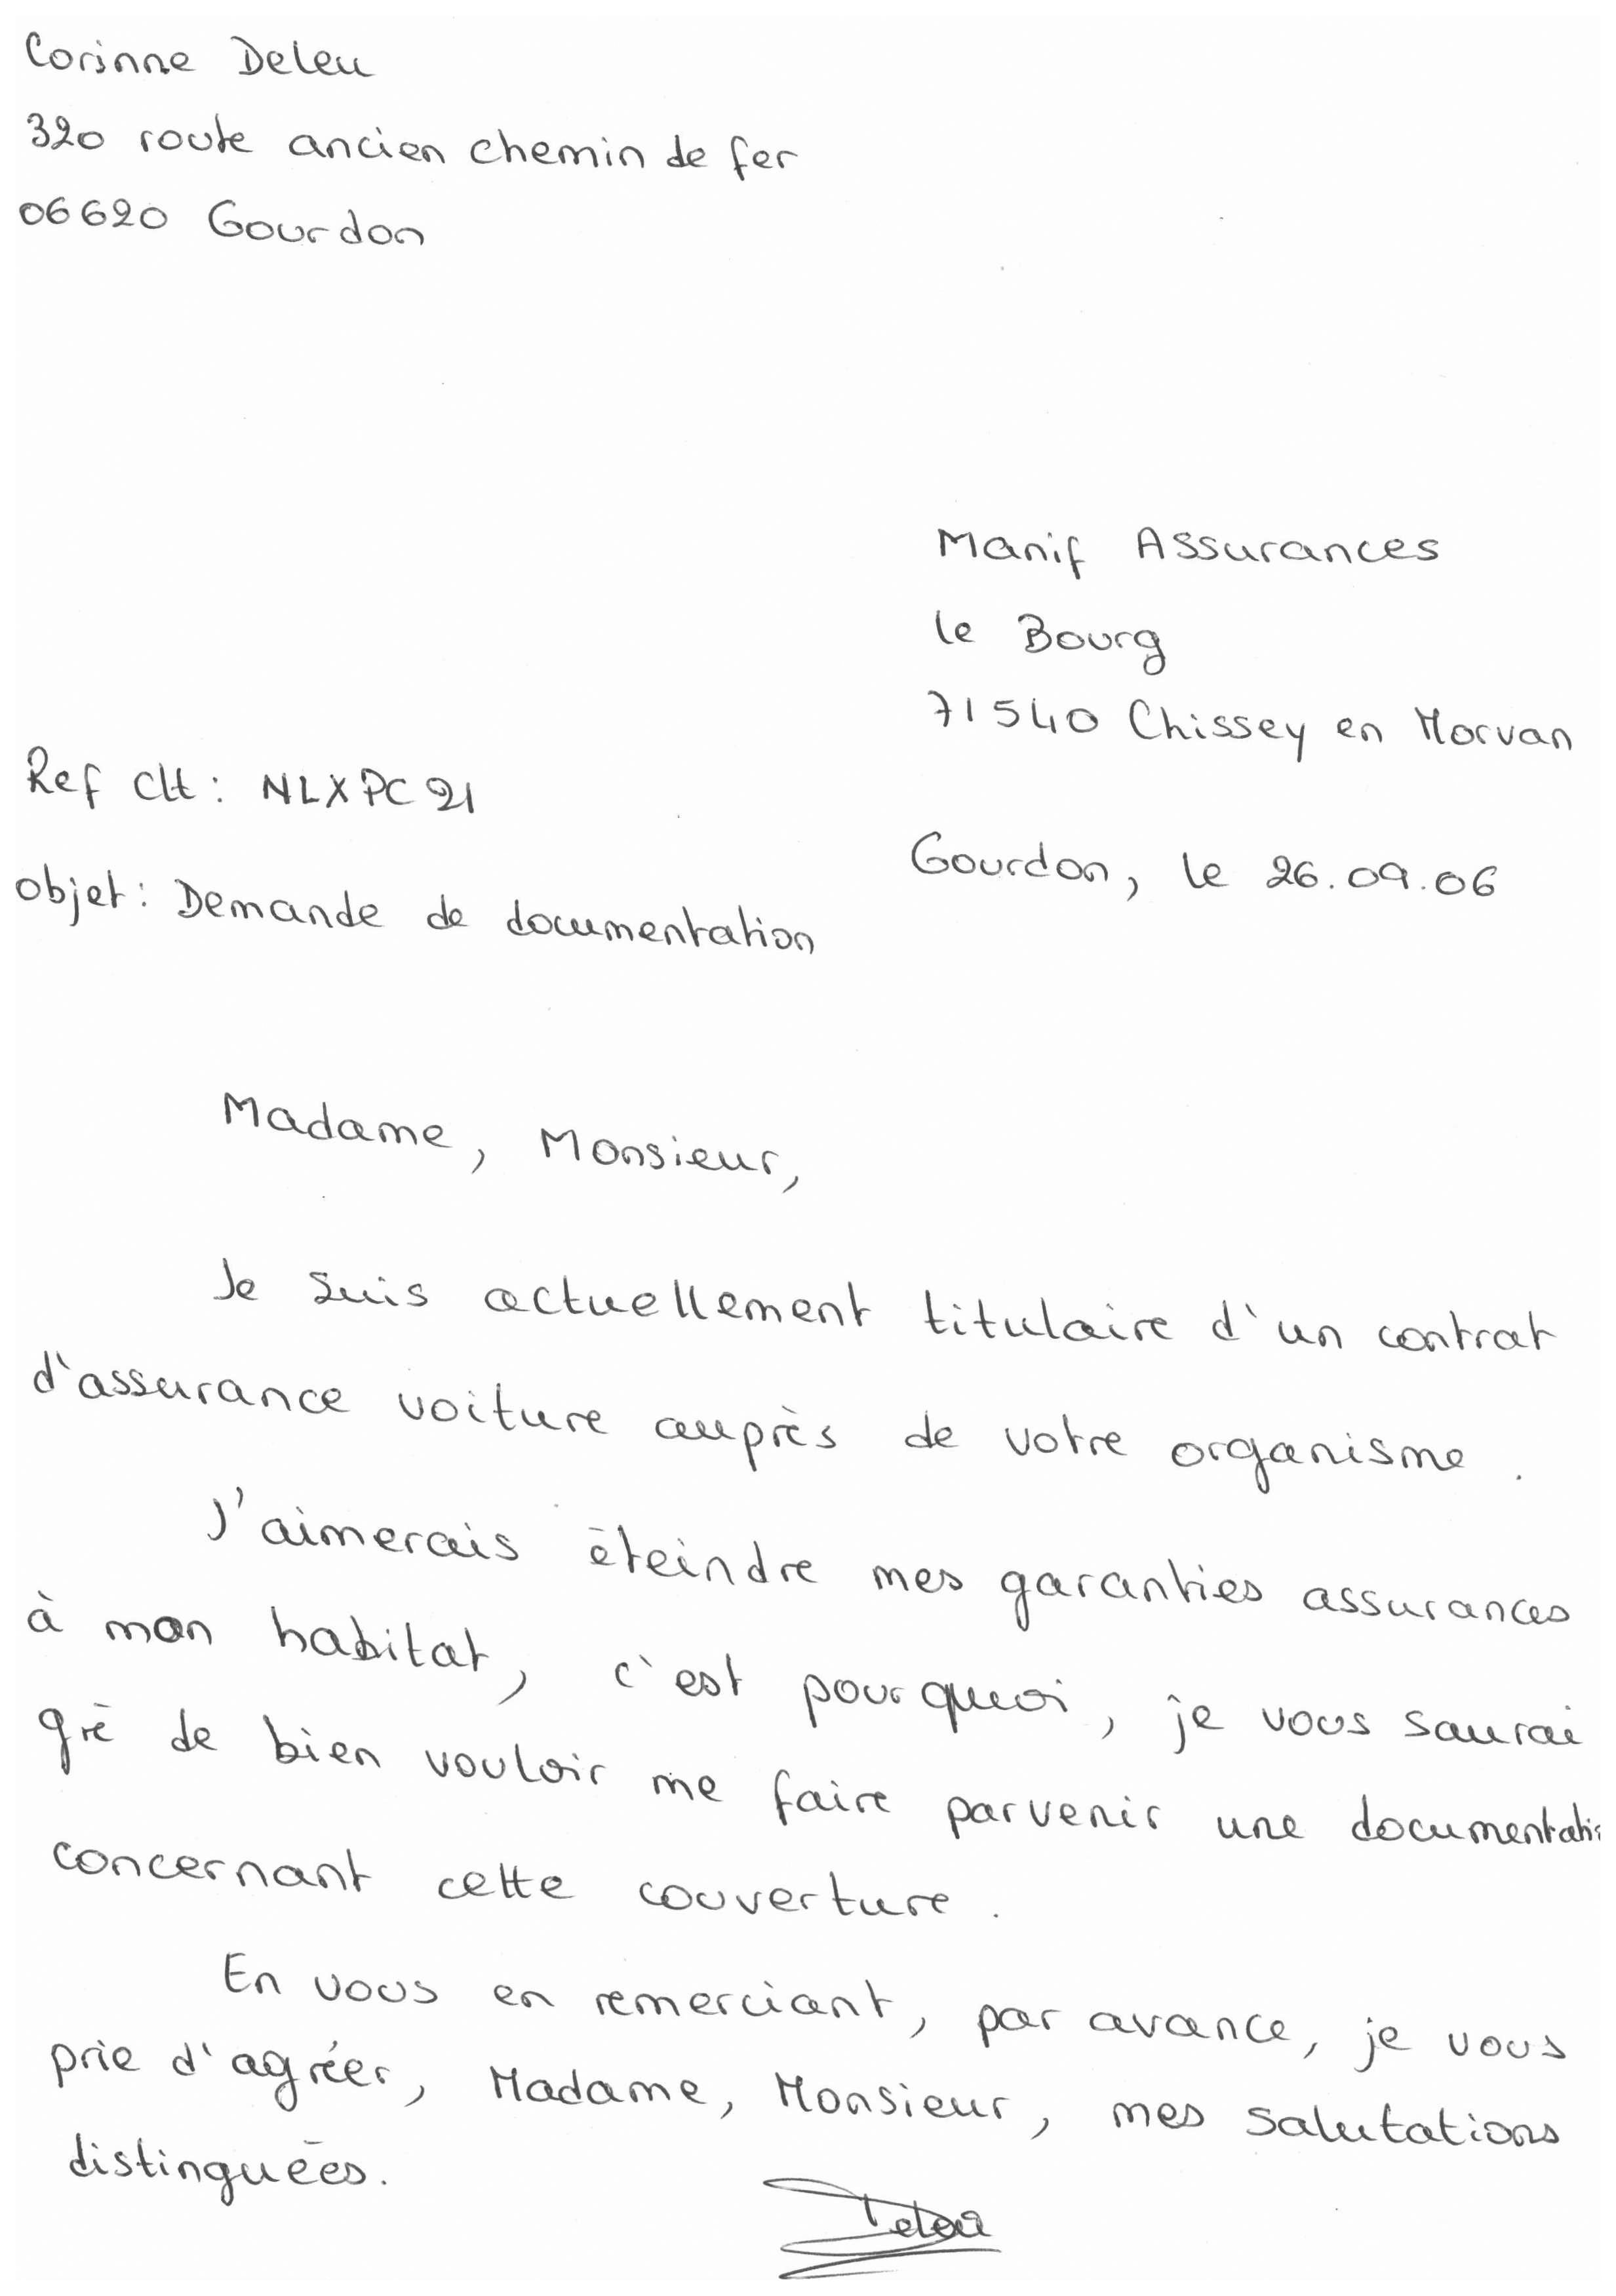 Corinne Deleu
320 route ancien chemin de fer
06620 Gourdon
Manif Assurances
le Bourg
71540 Chissey en Morvan
Ref Clt : NLXPC21
Gourdon, le 26.09.06
objet : Demande de documentation
Madame, Monsieur,
Je suis actuellement titulaire d'un contrat
d'assurance voiture auprès de votre organisme.
J'aimerais éteindre mes garanties assurances
à mon habitat, c'est pourquoi, je vous saurai
gré de bien vouloir me faire parvenir une documentati
concernant cette couverture.
En vous en remerciant, par avance, je vous
prie d'agréer, Madame, Monsieur, mes salutations
distinguées.
Deleu